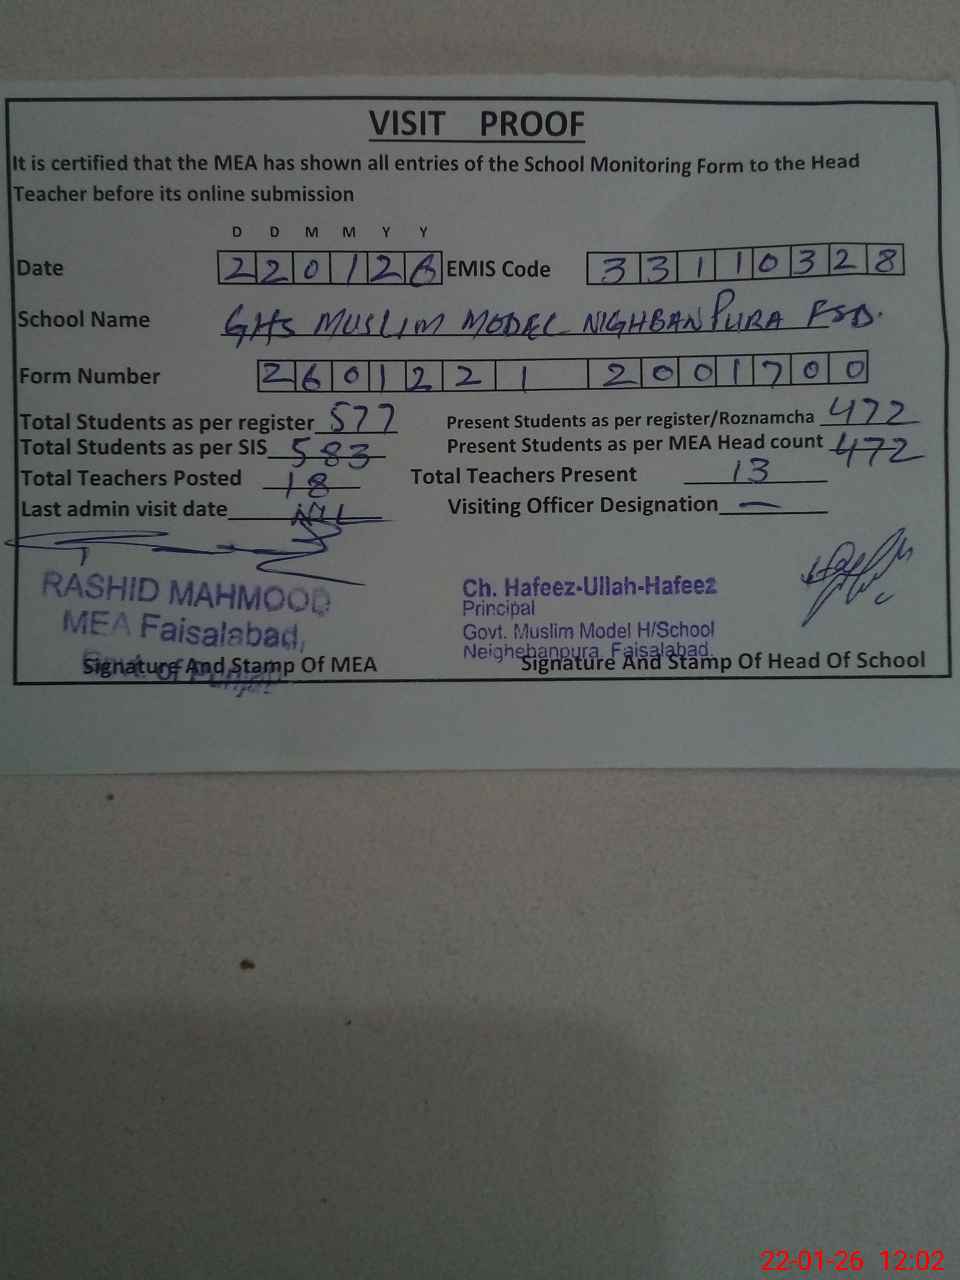 VISIT PROOF
It is certified that the MEA has shown all entries of the School Monitoring Form to the Head
Teacher before its online submission
D D M M Y Y
Date 2 2 0 1 2 6 EMIS Code 3 3 1 1 0 3 2 8
School Name GHS MUSLIM MODEL NIGHBANPURA FSD.
Form Number 2 6 0 1 2 2 1 2 0 0 1 7 0 0
Total Students as per register 577 Present Students as per register/Roznamcha 472
Total Students as per SIS 583 Present Students as per MEA Head count 472
Total Teachers Posted 18 Total Teachers Present 13
Last admin visit date NIL Visiting Officer Designation —
RASHID MAHMOOD
MEA Faisalabad,
Govt. of Punjab
Signature And Stamp Of MEA
Ch. Hafeez-Ullah-Hafeez
Principal
Govt. Muslim Model H/School
Neighebanpura, Faisalabad.
Signature And Stamp Of Head Of School
22-01-26 12:02